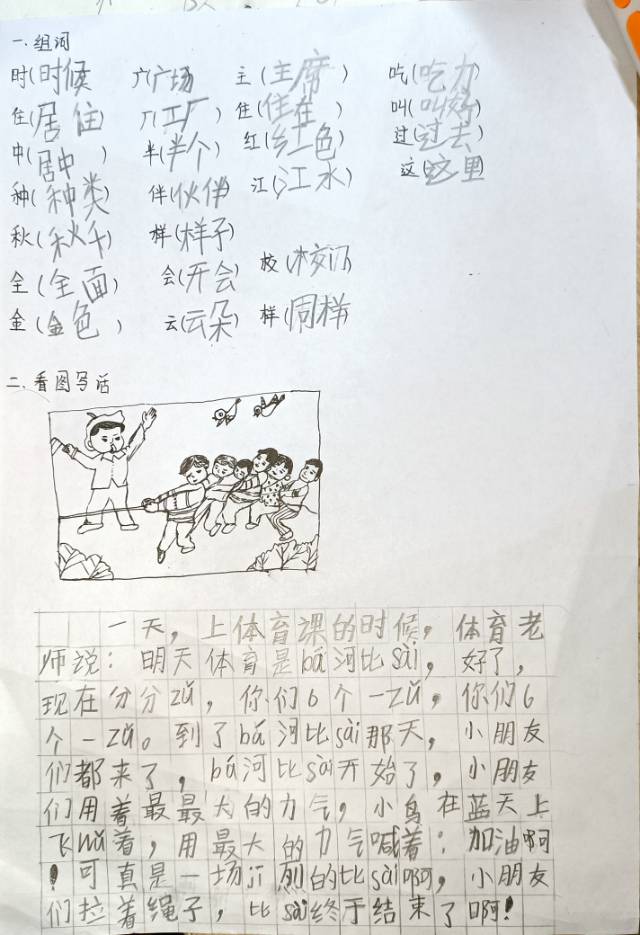 一.组词
时(时候 广(广场 主(主席) 吃(吃力)
住(居住 厂(工厂) 住(住在) 叫(叫好)
中(居中) 半(半个) 红(红色) 过(过去)
种(种类) 伴(伙伴) 江(江水) 这(这里
秋(秋千) 样(样子)
全(全面) 会(开会) 校(校门)
金(金色) 云(云朵) 样(同样)
二.看图写话
一天，上体育课的时候，体育老
师说：明天体育是bá河比sài，好了，
现在分分zǔ，你们6个一zǔ，你们6
个一zǔ。到了bá河比sài那天，小朋友
们都来了，bá河比sài开始了，小朋友
们用着最最大的力气，小鸟在蓝天上
飞wǔ着，用最大的力气喊着：加油啊
！可真是一场jī烈的比sài啊，小朋友
们拉着绳子，比sài终于结束了啊！